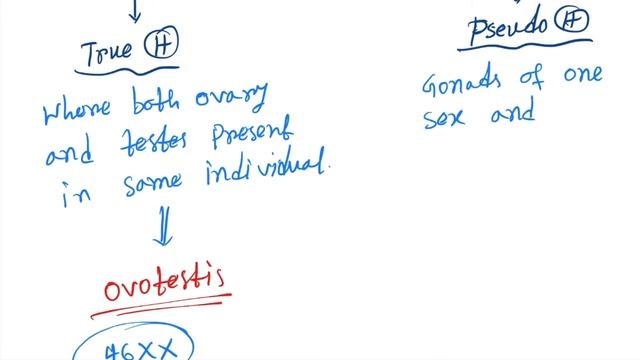 True H
where both ovary
and testes present
in same individual.
ovotestis
46XX
Pseudo H
Gonads of one
sex and